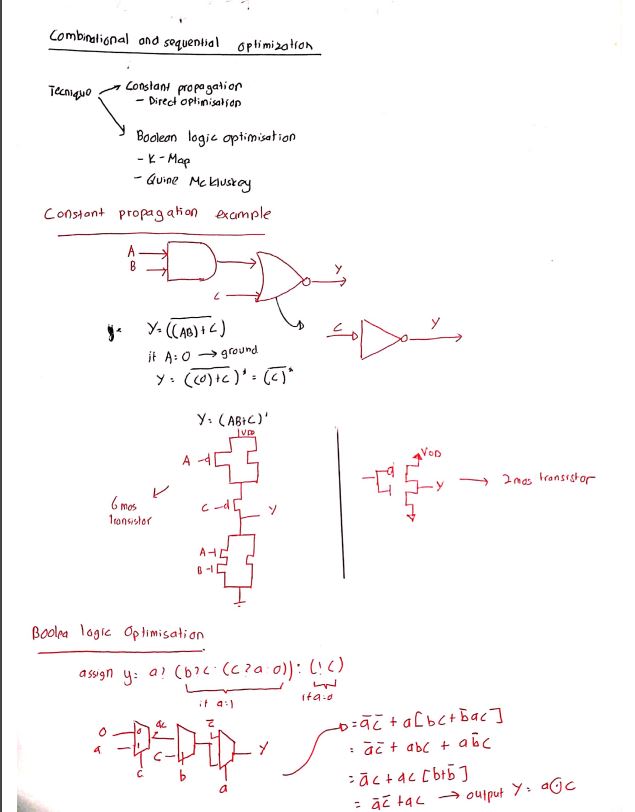 Combinational and sequential optimization
Tecniquo
Constant propagation
- Direct optimisation
Boolean logic optimisation
- K-Map
- Quine McKluskey
Constant propagation example
A
B
C
Y
C
Y
Y = \overline{((AB)+C)}
if A=0 → ground
Y = \overline{((0)+C)}' = \overline{(C)}'
Y = (AB+C)'
VDD
A
C
Y
A
B
6 mos
Transistor
VDD
Y
→ 2 mos transistor
Boolea logic Optimisation
assign y = a? (b?c : (c?a:0)) : (!c)
if a=1
if a=0
0
a
c
ac
C
b
c̄
a
Y
= āc̄ + a[bc+b̄ac]
= āc̄ + abc + ab̄c
= āc + ac [b+b̄]
= āc̄ + ac → output Y = a⊙c